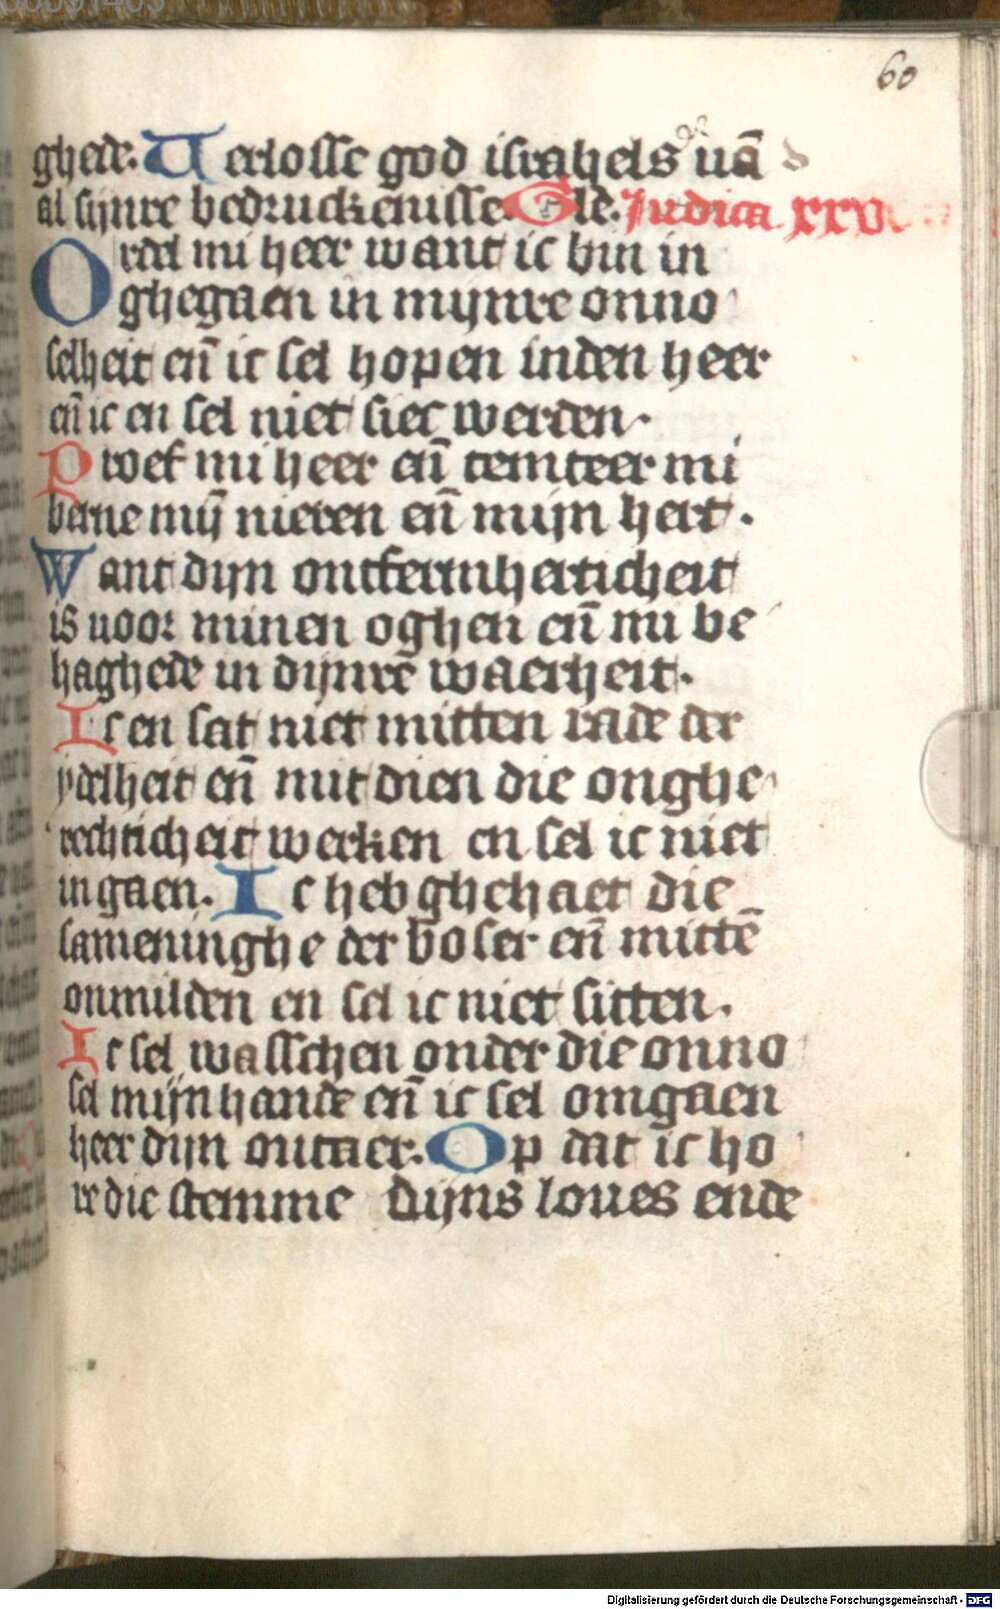 60
ghede. Uerlosse god israhels uā
al sijnre bedruckenisse. Gle. Iudica xxv
Ordel mi heer want ic bin in
ghegaen in mijnre onno
selheit en̄ ic sel hopen inden heer
en̄ ic en sel niet siec werden.
Proef mi heer en̄ temteer mi
berne mij̄ nieren en̄ mijn hert.
Want dijn ontfermherticheit
is uoor minen oghen en̄ mi be
haghede in dijnre waerheit.
Ic en sat niet mitten rade der
ydelheit en̄ mit dien die onghe
rechticheit werken en sel ic niet
ingaen. Ic heb ghehaet die
sameninghe der boser en̄ mittē
onmilden en sel ic niet sitten.
Ic sel wasschen onder die onno
sel mijn hande en̄ ic sel omgaen
heer dijn outaer. Op dat ic ho
re die stemme dijns loues ende
Digitalisierung gefördert durch die Deutsche Forschungsgemeinschaft - DFG